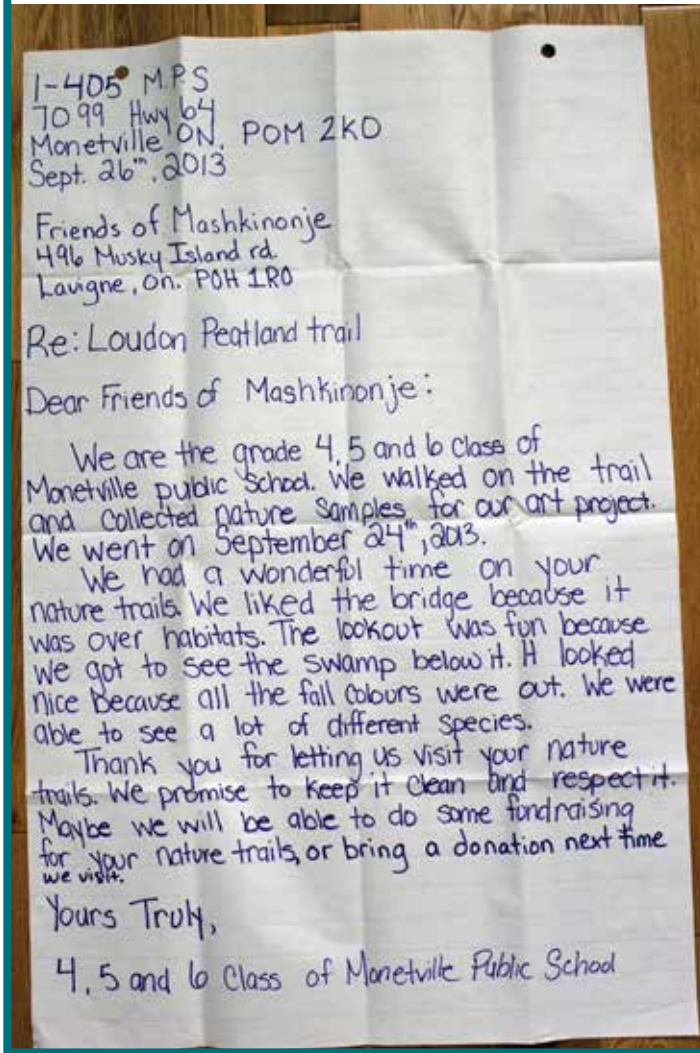 1-405 M.P.S
7099 Hwy 64
Monetville ON. POM 2KO
Sept. 26th, 2013
Friends of Mashkinonje
496 Musky Island rd.
Lavigne, On. POH 1RO
Re: Loudon Peatland trail
Dear Friends of Mashkinonje:
We are the grade 4, 5 and 6 Class of
Monetville public School. We walked on the trail
and collected nature samples for our art project.
We went on September 24th, 2013.
We had a wonderful time on your
nature trails. We liked the bridge because it
was over habitats. The lookout was fun because
we got to see the swamp below it. It looked
nice because all the fall colours were out. We were
able to see a lot of different species.
Thank you for letting us visit your nature
trails. We promise to keep it clean and respect it.
Maybe we will be able to do some fundraising
for your nature trails, or bring a donation next time
we visit.
Yours Truly,
4, 5 and 6 Class of Monetville Public School